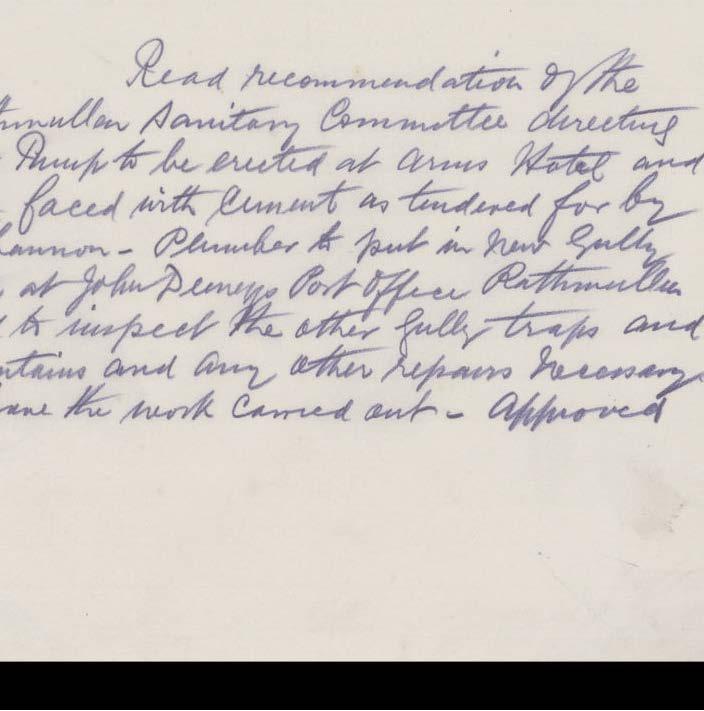 Read recommendation of the
thmullan Sanitary Committee directing
Pump to be erected at Arms Hotel and
faced with Cement as tendered for by
hannon - Plumber to put in New Gully
at John Deeneys Post Office Rathmullan
to inspect the other Gully traps and
ntains and any other repairs necessary
ave the work carried out - Approved